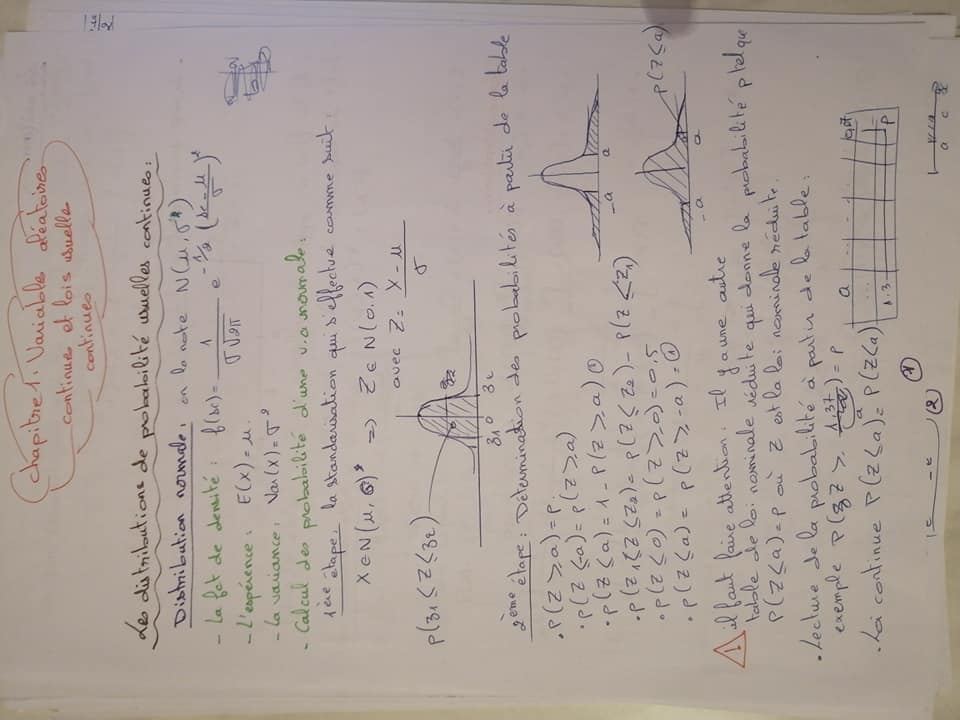 Chapitre 1. Variable aléatoires
continues et lois usuelle
continues
Les distributions de probabilité usuelles continues:
Distribution normale: on la note N(μ, σ²)
- La fct de densité : f(x) = 1/(σ√2π) e^(-1/2 ((x-μ)/σ)²)
- L'espérience : E(X) = μ.
- La variance : Var(X) = σ²
- Calcul des probabilité d'une v.a normale:
1ère étape: la standarisation qui s'effectue comme suit:
X ∈ N(μ, σ)² => Z ∈ N(0.1)
avec Z = (X - μ)/σ
P(z1 ≤ Z ≤ z2)
z1 0 z2
2ème étape: Détermination des probabilités à partir de la table
• P(Z ≥ a) = P.
• P(Z ≤ -a) = P(Z ≥ a)
• P(Z ≤ a) = 1 - P(Z ≥ a) ①
• P(Z1 ≤ Z ≤ Z2) = P(Z ≤ Z2) - P(Z ≤ Z1)
• P(Z ≤ 0) = P(Z ≥ 0) = 0,5
• P(Z ≤ a) = P(Z ≥ -a) = ②
-a a
-a a P(Z ≤ a)
! il faut faire attention: Il y a une autre
table de loi nominale réduite qui donne la probabilité p tel que
P(Z ≤ a) = P où Z est la loi nominale réduite.
• Lecture de la probabilité à partir de la table:
exemple P(Z ≥ 1.37) = P
a
1.3 P
• Loi continue P(Z ≤ a) = P(Z < a)